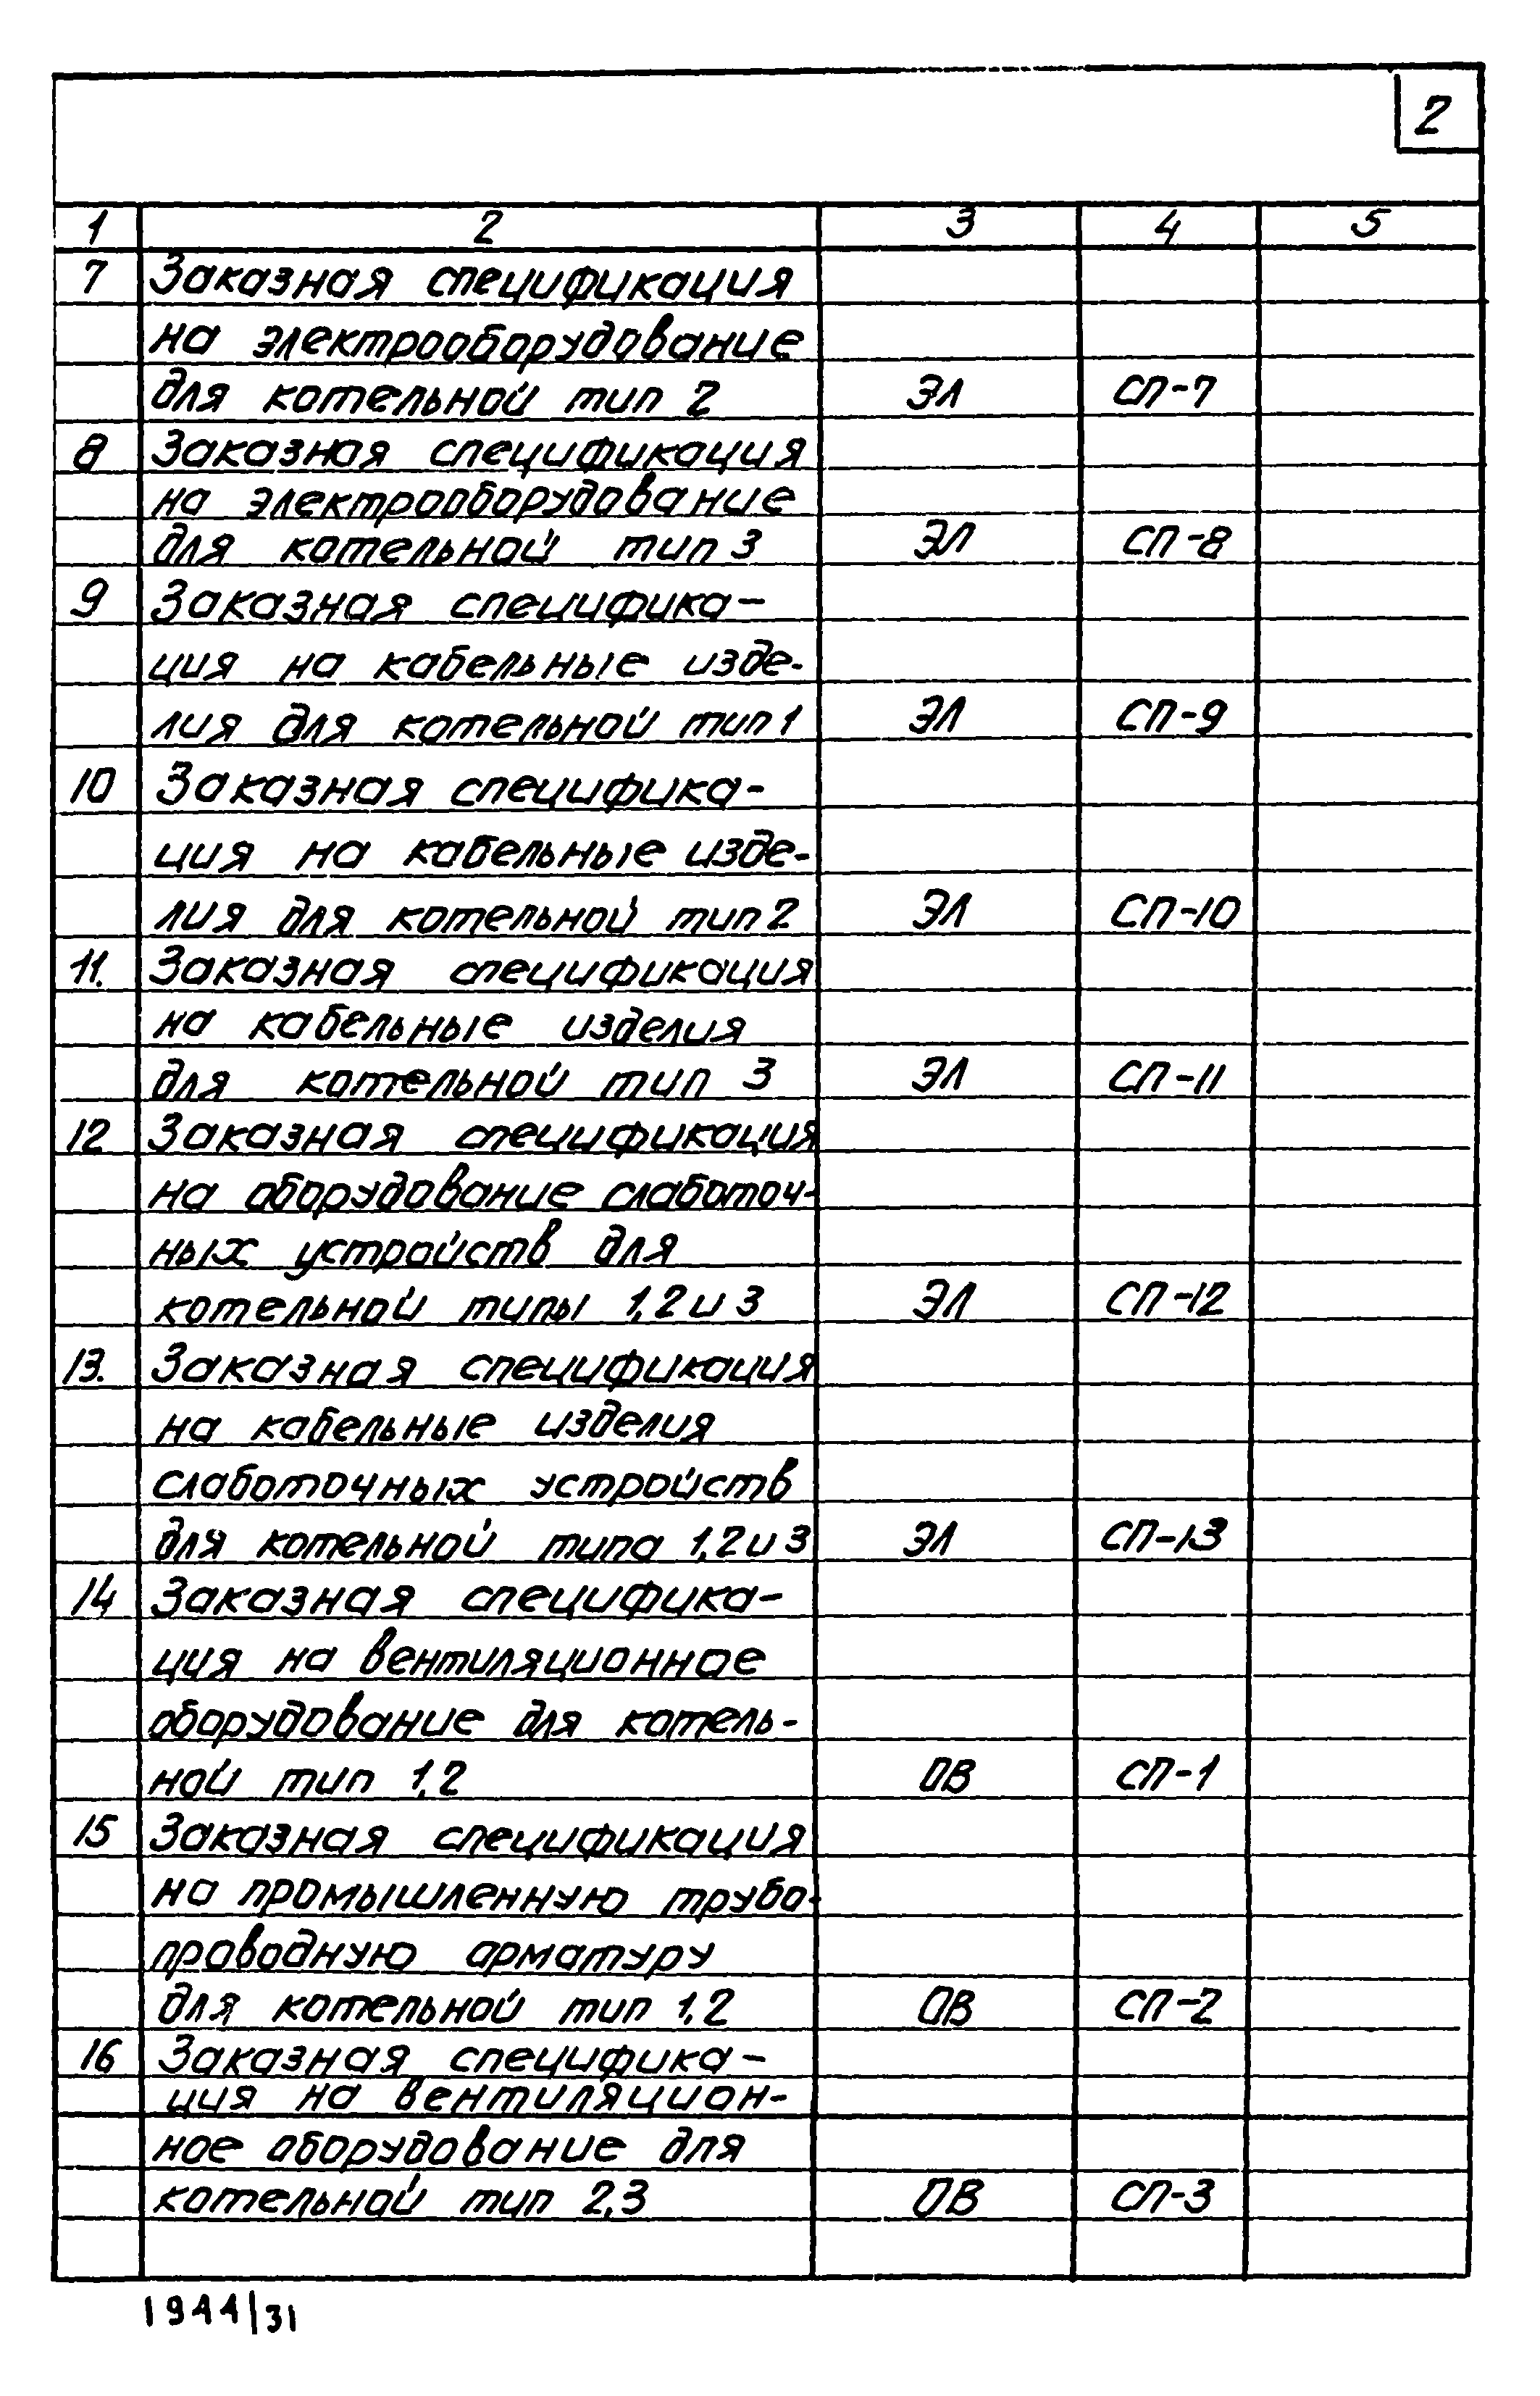 2
1 2 3 4 5
7 Заказная спецификация
на электрооборудование
для котельной тип 2 ЭЛ СП-7
8 Заказная спецификация
на электрооборудование
для котельной тип 3 ЭЛ СП-8
9 Заказная специфика-
ция на кабельные изде-
лия для котельной тип 1 ЭЛ СП-9
10 Заказная специфика-
ция на кабельные изде-
лия для котельной тип 2 ЭЛ СП-10
11. Заказная спецификация
на кабельные изделия
для котельной тип 3 ЭЛ СП-11
12 Заказная спецификация
на оборудование слаботоч-
ных устройств для
котельной типы 1,2 и 3 ЭЛ СП-12
13. Заказная спецификация
на кабельные изделия
слаботочных устройств
для котельной типа 1,2 и 3 ЭЛ СП-13
14 Заказная специфика-
ция на вентиляционное
оборудование для котель-
ной тип 1,2 ОВ СП-1
15 Заказная спецификация
на промышленную трубо-
проводную арматуру
для котельной тип 1,2 ОВ СП-2
16 Заказная специфика-
ция на вентиляцион-
ное оборудование для
котельной тип 2,3 ОВ СП-3
1944/31